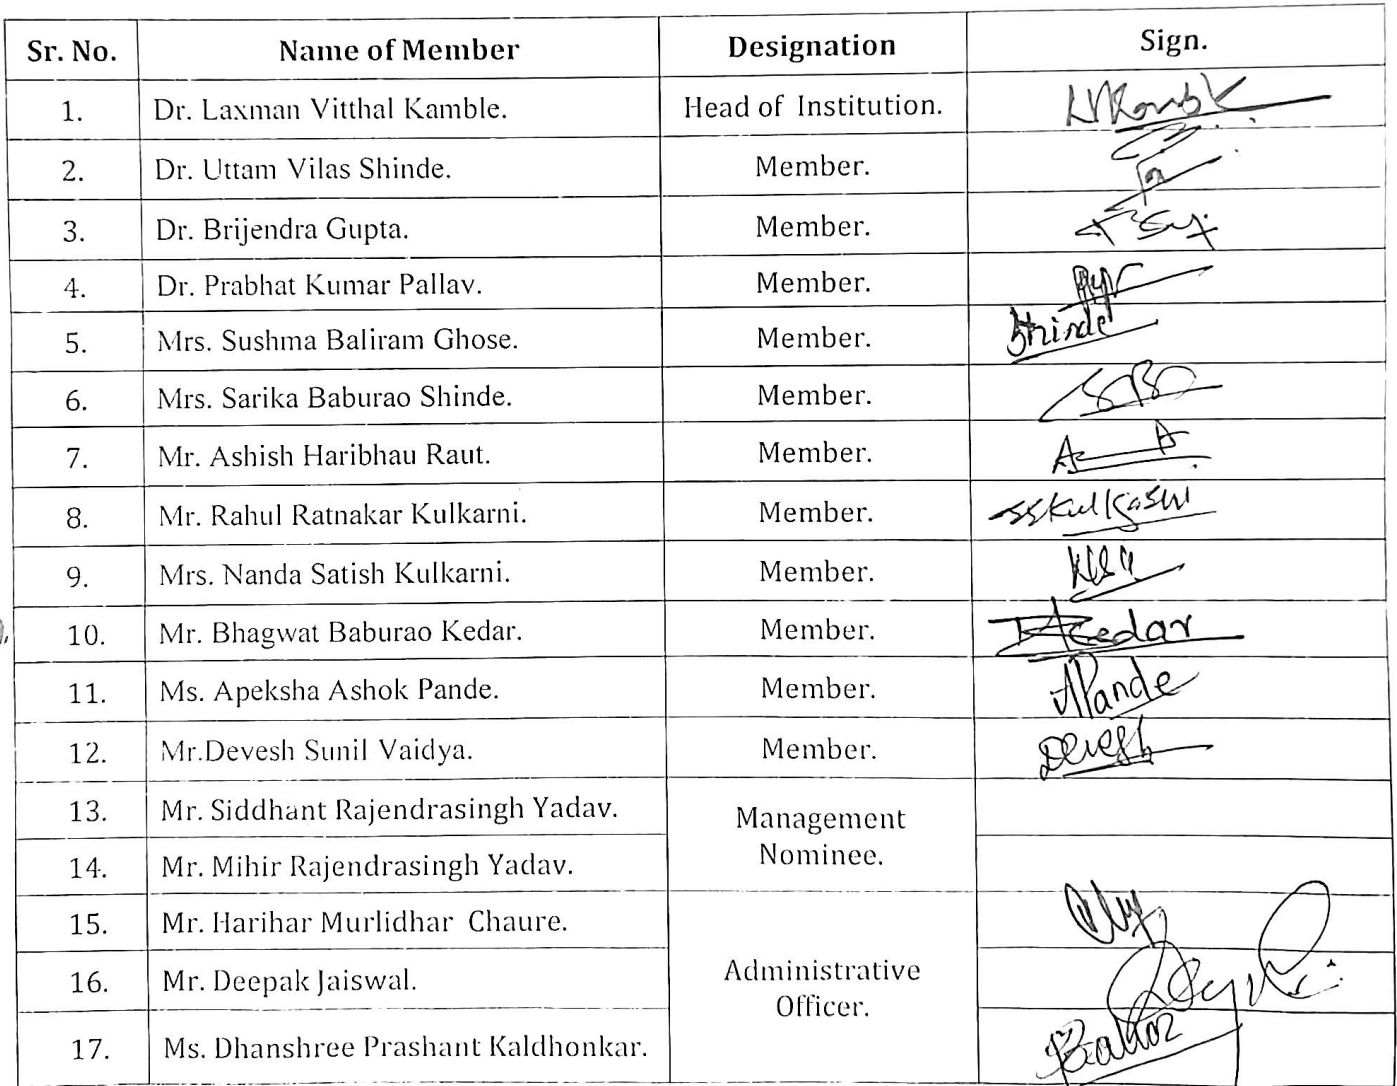 Sr. No. Name of Member Designation Sign.
1. Dr. Laxman Vitthal Kamble. Head of Institution.
2. Dr. Uttam Vilas Shinde. Member.
3. Dr. Brijendra Gupta. Member.
4. Dr. Prabhat Kumar Pallav. Member.
5. Mrs. Sushma Baliram Ghose. Member. Shinde
6. Mrs. Sarika Baburao Shinde. Member.
7. Mr. Ashish Haribhau Raut. Member.
8. Mr. Rahul Ratnakar Kulkarni. Member.
9. Mrs. Nanda Satish Kulkarni. Member.
10. Mr. Bhagwat Baburao Kedar. Member. Kedar
11. Ms. Apeksha Ashok Pande. Member. APande
12. Mr.Devesh Sunil Vaidya. Member. Devesh
13. Mr. Siddhant Rajendrasingh Yadav.
Management
Nominee.
14. Mr. Mihir Rajendrasingh Yadav.
15. Mr. Harihar Murlidhar Chaure.
16. Mr. Deepak Jaiswal.
Administrative
Officer.
17. Ms. Dhanshree Prashant Kaldhonkar.